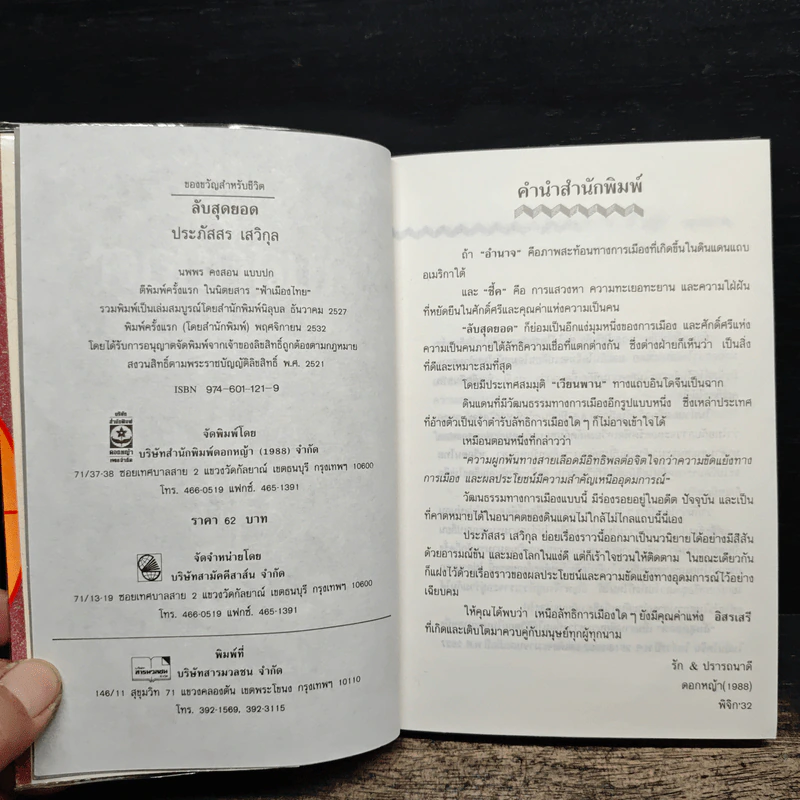 ของขวัญสำหรับชีวิต
ลับสุดยอด
ประภัสสร เสวิกุล
นพพร คงสอน แบบปก
ตีพิมพ์ครั้งแรก ในนิตยสาร "ฟ้าเมืองไทย"
รวมพิมพ์เป็นเล่มสมบูรณ์โดยสำนักพิมพ์นิลุบล ธันวาคม 2527
พิมพ์ครั้งแรก (โดยสำนักพิมพ์) พฤศจิกายน 2532
โดยได้รับการอนุญาตจัดพิมพ์จากเจ้าของลิขสิทธิ์ถูกต้องตามกฎหมาย
สงวนสิทธิ์ตามพระราชบัญญัติลิขสิทธิ์ พ.ศ. 2521
ISBN 974-601-121-9
บริษัท
สำนักพิมพ์
ดอกหญ้า
จัดพิมพ์โดย
บริษัทสำนักพิมพ์ดอกหญ้า (1988) จำกัด
71/37-38 ซอยเทศบาลสาย 2 แขวงวัดกัลยาณ์ เขตธนบุรี กรุงเทพฯ 10600
โทร. 466-0519 แฟกซ์. 465-1391
ราคา 62 บาท
จัดจำหน่ายโดย
บริษัทสามัคคีสาส์น จำกัด
71/13-19 ซอยเทศบาลสาย 2 แขวงวัดกัลยาณ์ เขตธนบุรี กรุงเทพฯ 10600
โทร. 466-0519 แฟกซ์. 465-1391
พิมพ์ที่
สารมวลชน
บริษัทสารมวลชน จำกัด
146/11 สุขุมวิท 71 แขวงคลองตัน เขตพระโขนง กรุงเทพฯ 10110
โทร. 392-1569, 392-3115
คำนำสำนักพิมพ์
ถ้า "อำนาจ" คือภาพสะท้อนทางการเมืองที่เกิดขึ้นในดินแดนแถบ
อเมริกาใต้
และ "ชี้ค" คือ การแสวงหา ความทะเยอทะยาน และความใฝ่ฝัน
ที่หยัดยืนในศักดิ์ศรีและคุณค่าแห่งความเป็นคน
"ลับสุดยอด" ก็ย่อมเป็นอีกแง่มุมหนึ่งของการเมือง และศักดิ์ศรีแห่ง
ความเป็นคนภายใต้ลัทธิความเชื่อที่แตกต่างกัน ซึ่งต่างฝ่ายก็เห็นว่า เป็นสิ่ง
ที่ดีและเหมาะสมที่สุด
โดยมีประเทศสมมุติ "เวียนพาน" ทางแถบอินโดจีนเป็นฉาก
ดินแดนที่มีวัฒนธรรมทางการเมืองอีกรูปแบบหนึ่ง ซึ่งเหล่าประเทศ
ที่อ้างตัวเป็นเจ้าตำรับลัทธิการเมืองใดๆ ก็ไม่อาจเข้าใจได้
เหมือนตอนหนึ่งที่กล่าวว่า
"ความผูกพันทางสายเลือดมีอิทธิพลต่อจิตใจกว่าความขัดแย้งทาง
การเมือง และผลประโยชน์มีความสำคัญเหนืออุดมการณ์"
วัฒนธรรมทางการเมืองแบบนี้ มีร่องรอยอยู่ในอดีต ปัจจุบัน และเป็น
ที่คาดหมายได้ในอนาคตของดินแดนไม่ใกล้ไม่ไกลแถบนี้นี่เอง
ประภัสสร เสวิกุล ย่อยเรื่องราวนี้ออกมาเป็นนวนิยายได้อย่างมีสีสัน
ด้วยอารมณ์ขัน และมองโลกในแง่ดี แต่ก็เร้าใจชวนให้ติดตาม ในขณะเดียวกัน
ก็แฝงไว้ด้วยเรื่องราวของผลประโยชน์และความขัดแย้งทางอุดมการณ์ไว้อย่าง
เฉียบคม
ให้คุณได้พบว่า เหนือลัทธิการเมืองใดๆ ยังมีคุณค่าแห่ง อิสรเสรี
ที่เกิดและเติบโตมาควบคู่กับมนุษย์ทุกผู้ทุกนาม
รัก & ปรารถนาดี
ดอกหญ้า(1988)
พิจิก'32